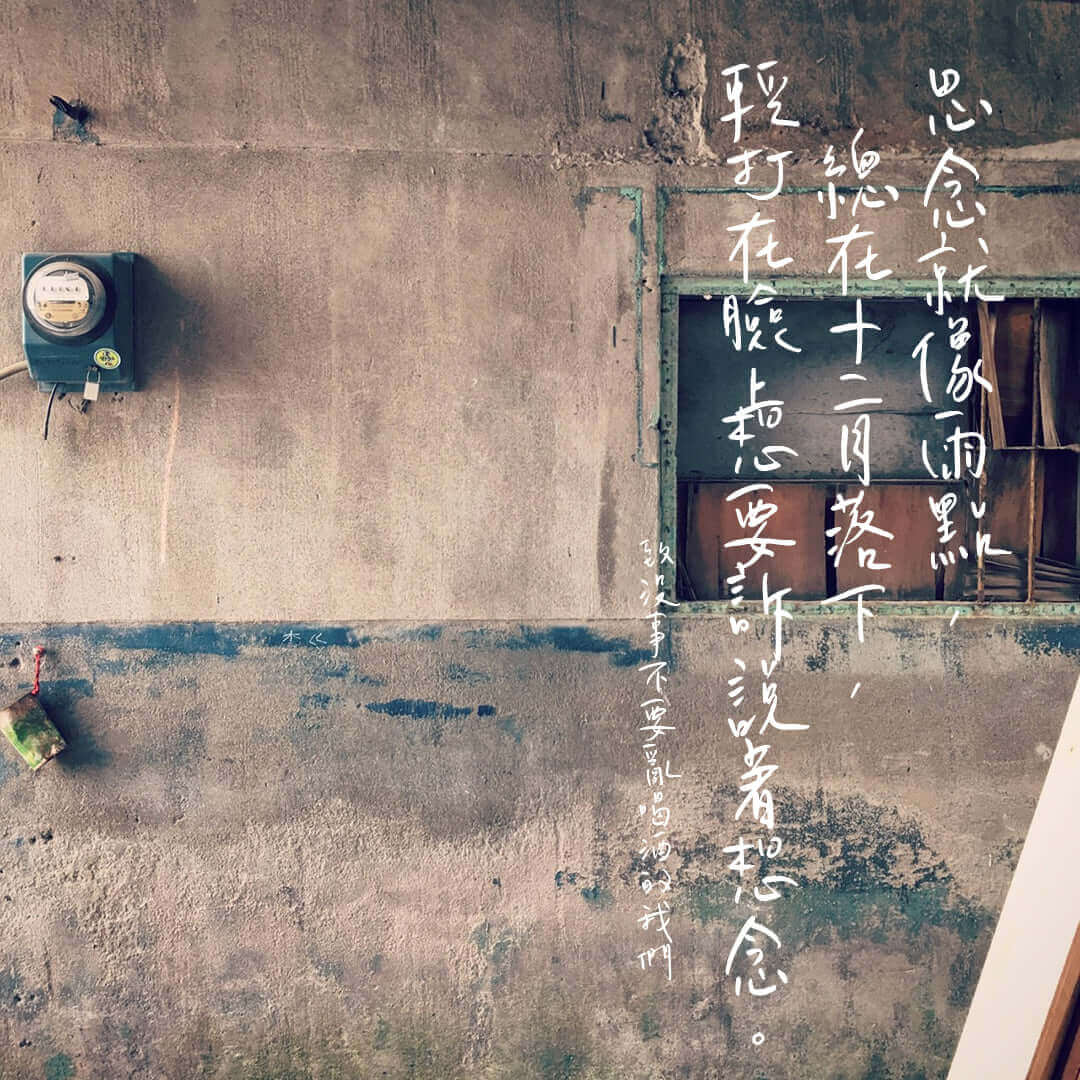 思念就像雨點，
總在十二月落下，
輕打在臉上想要訴說著想念。
致沒事不要亂喝酒的我們